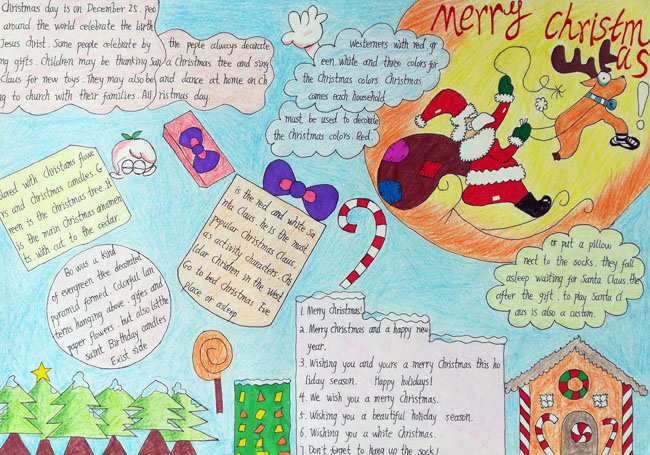 merry christm
as !
Christmas day is on December 25. peo
around the world celebrate the birth
Jesus christ. Some people celebrate by
ing gifts. Children may be thanking San
Claus for new toys. They may also be
ng to church with their families. All
the peple always decorate
a Christmas tree and sing
and dance at home on Ch
ristmas day.
Westerners with red, gr
een, white and three colors for
the Christmas colors Christmas
comes each household
must be used to decorate
the Christmas colors. Red.
lored with Christams flowe
rs and christmas candles. G
reen is the christmas tree. It
is the main Christmas ornamen
ts with cut to the cedar.
Bo was a kind
of evergreen tree decorated
pyramid formed. Colorful lan
terns hanging above. gifes and
paper flowers. but also lit the
saint Birthday candles
Exist side
is the red and white Sa
nta Claus he is the most
popular Christmas Claus
as activity characters. Chs
ldar Chridren in the West
Go to bed Christmas Eve
place or asleep
or put a pillow
nect to the socks. they fall
asleep waiting for Santa Claus. the
after the gift. to play Santa Cl
aus is also a custom.
1. Merry Christmas!
2. Merry Christmas and a happy new
year.
3. Wishing you and yours a merry Christmas this ho
liday season. Happy holidays!
4. We wish you a merry Christmas.
5. Wishing you a beautiful holiday season.
6. Wishing you a white Christmas.
7. Don't forget to hang up the sock!